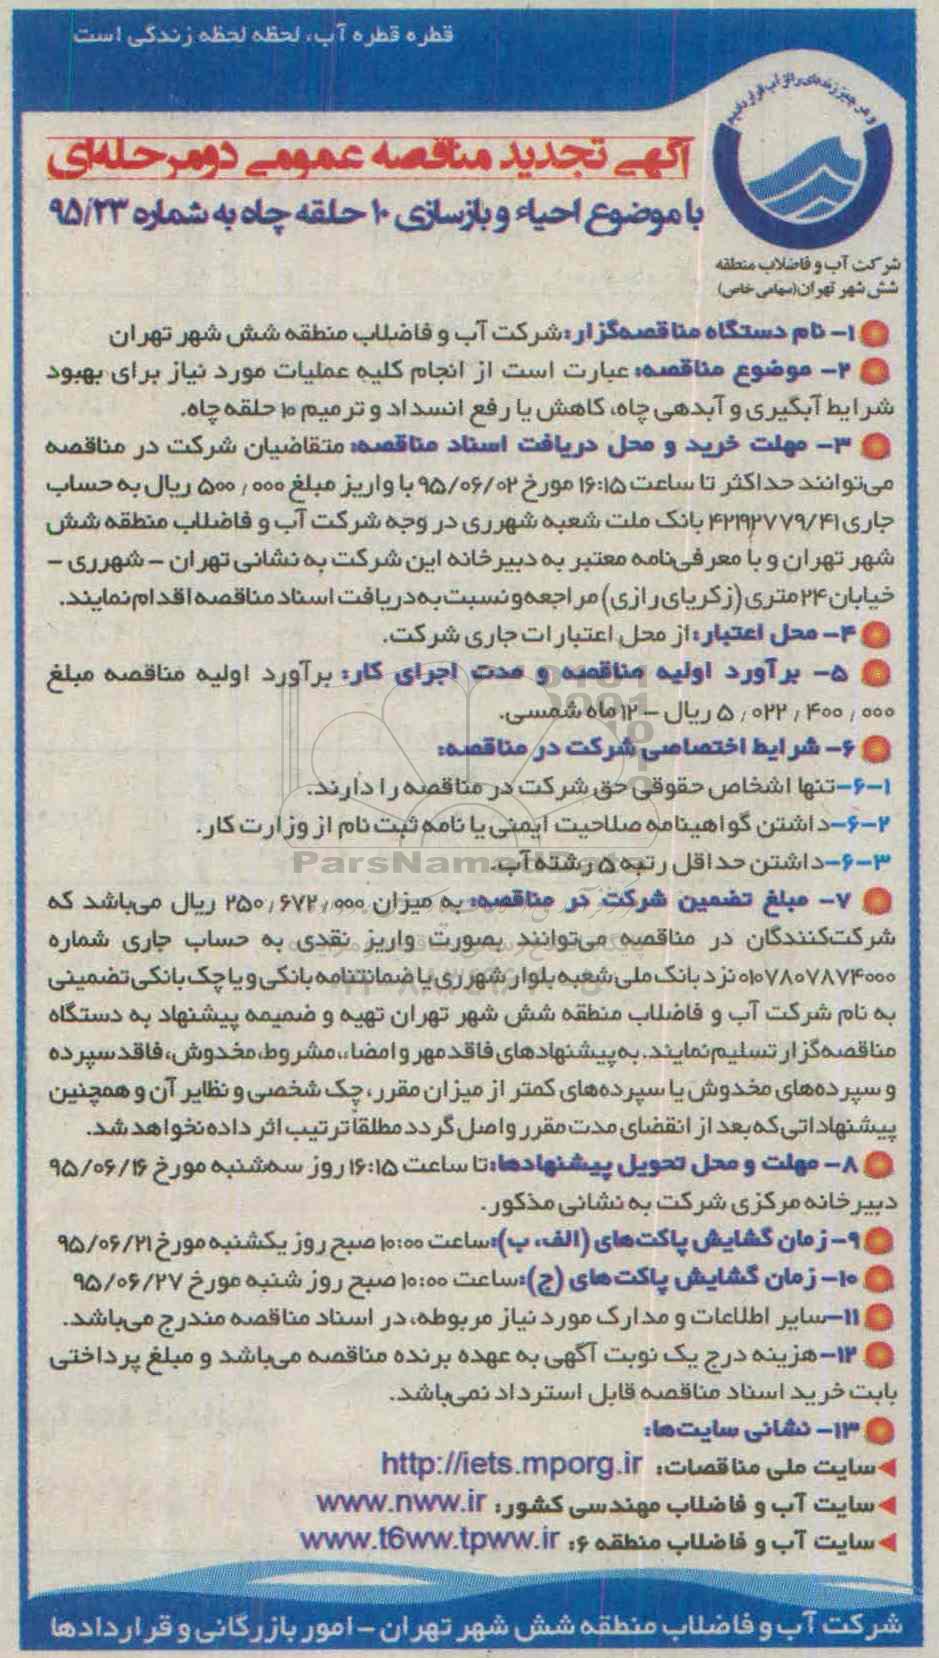 قطره قطره آب، لحظه لحظه زندگی است
و هر چیز زنده‌ای را از آب قرار دادیم
آگهی تجدید مناقصه عمومی دومرحله‌ای
با موضوع احیاء و بازسازی ۱۰ حلقه چاه به شماره ۹۵/۲۳
شرکت آب و فاضلاب منطقه
شش شهر تهران (سهامی خاص)
۱- نام دستگاه مناقصه‌گزار: شرکت آب و فاضلاب منطقه شش شهر تهران
۲- موضوع مناقصه: عبارت است از انجام کلیه عملیات مورد نیاز برای بهبود
شرایط آبگیری و آبدهی چاه، کاهش یا رفع انسداد و ترمیم ۱۰ حلقه چاه.
۳- مهلت خرید و محل دریافت اسناد مناقصه: متقاضیان شرکت در مناقصه
می‌توانند حداکثر تا ساعت ۱۶:۱۵ مورخ ۹۵/۰۶/۰۲ با واریز مبلغ ۵۰۰٫۰۰۰ ریال به حساب
جاری ۴۲۱۹۲۷۷۹/۴۱ بانک ملت شعبه شهرری در وجه شرکت آب و فاضلاب منطقه شش
شهر تهران و با معرفی‌نامه معتبر به دبیرخانه این شرکت به نشانی تهران - شهرری -
خیابان ۲۴متری (زکریای رازی) مراجعه و نسبت به دریافت اسناد مناقصه اقدام نمایند.
۴- محل اعتبار: از محل اعتبارات جاری شرکت.
۵- برآورد اولیه مناقصه و مدت اجرای کار: برآورد اولیه مناقصه مبلغ
۵٫۰۲۲٫۴۰۰٫۰۰۰ ریال - ۱۲ ماه شمسی.
۶- شرایط اختصاصی شرکت در مناقصه:
۶-۱-تنها اشخاص حقوقی حق شرکت در مناقصه را دارند.
۶-۲-داشتن گواهینامه صلاحیت ایمنی یا نامه ثبت نام از وزارت کار.
۶-۳-داشتن حداقل رتبه ۵ رشته آب.
ParsNamadData
۷- مبلغ تضمین شرکت در مناقصه: به میزان ۲۵۰٫۶۷۲٫۰۰۰ ریال می‌باشد که
شرکت‌کنندگان در مناقصه می‌توانند بصورت واریز نقدی به حساب جاری شماره
۰۱۰۷۸۰۷۸۷۴۰۰۰ نزد بانک ملی شعبه بلوار شهرری یا ضمانتنامه بانکی و یا چک بانکی تضمینی
به نام شرکت آب و فاضلاب منطقه شش شهر تهران تهیه و ضمیمه پیشنهاد به دستگاه
مناقصه‌گزار تسلیم نمایند. به پیشنهادهای فاقد مهر و امضاء، مشروط، مخدوش، فاقد سپرده
و سپرده‌های مخدوش یا سپرده‌های کمتر از میزان مقرر، چک شخصی و نظایر آن و همچنین
پیشنهاداتی که بعد از انقضای مدت مقرر واصل گردد مطلقا ترتیب اثر داده نخواهد شد.
۸- مهلت و محل تحویل پیشنهادها: تا ساعت ۱۶:۱۵ روز سه‌شنبه مورخ ۹۵/۰۶/۱۶
دبیرخانه مرکزی شرکت به نشانی مذکور.
۹- زمان گشایش پاکت‌های (الف، ب): ساعت ۱۰:۰۰ صبح روز یکشنبه مورخ ۹۵/۰۶/۲۱
۱۰- زمان گشایش پاکت‌های (ج): ساعت ۱۰:۰۰ صبح روز شنبه مورخ ۹۵/۰۶/۲۷
۱۱-سایر اطلاعات و مدارک مورد نیاز مربوطه، در اسناد مناقصه مندرج می‌باشد.
۱۲-هزینه درج یک نوبت آگهی به عهده برنده مناقصه می‌باشد و مبلغ پرداختی
بابت خرید اسناد مناقصه قابل استرداد نمی‌باشد.
۱۳- نشانی سایت‌ها:
سایت ملی مناقصات: http://iets.mporg.ir
سایت آب و فاضلاب مهندسی کشور: www.nww.ir
سایت آب و فاضلاب منطقه ۶: www.t6ww.tpww.ir
شرکت آب و فاضلاب منطقه شش شهر تهران - امور بازرگانی و قراردادها